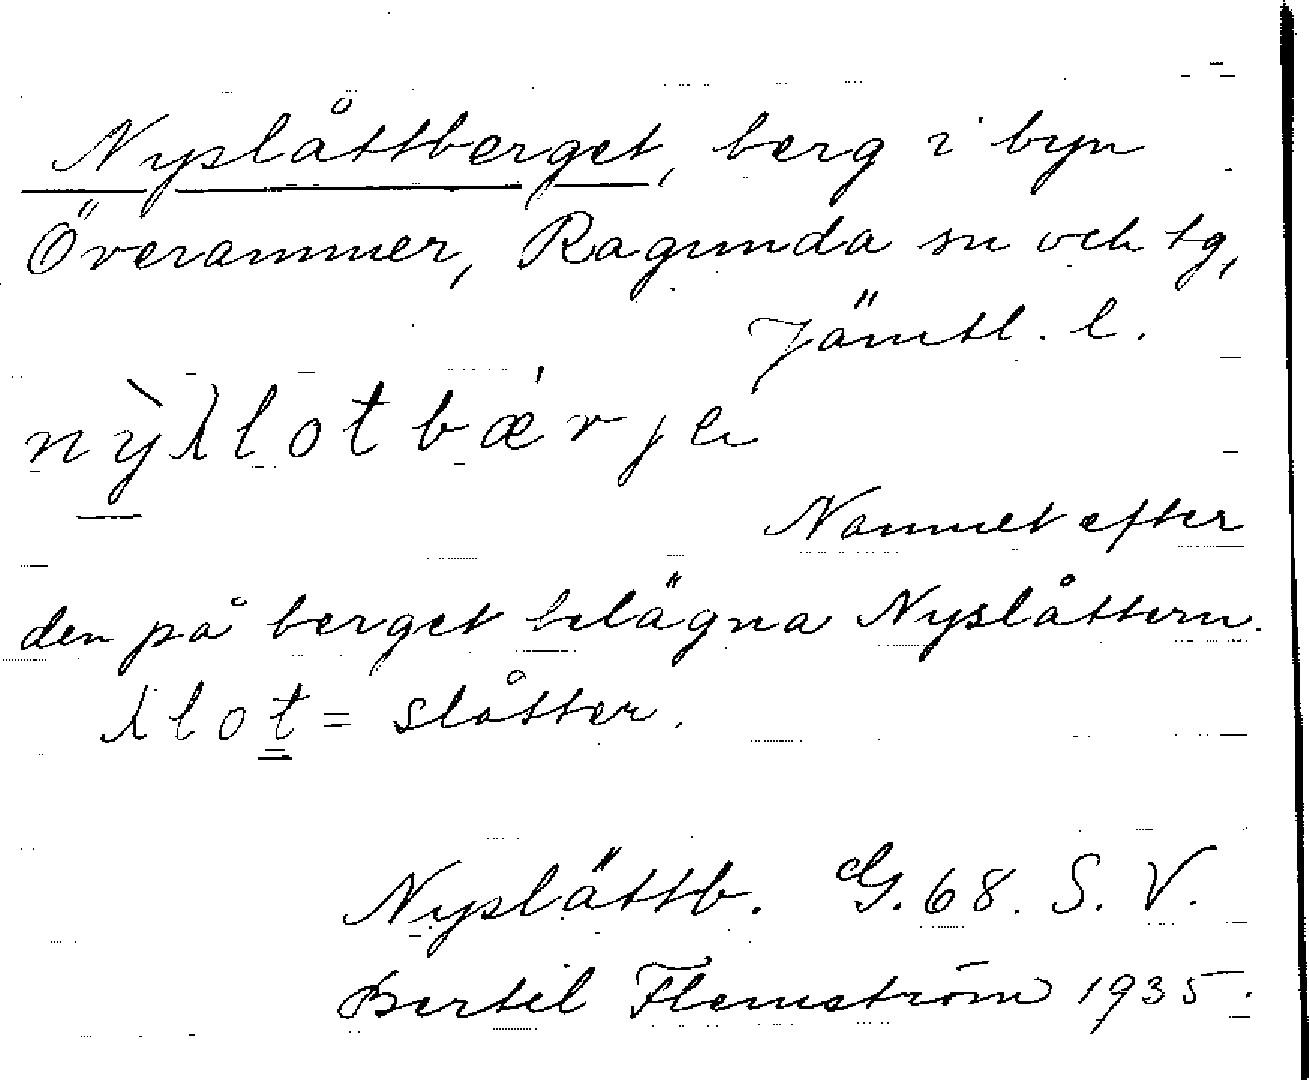 Nyslåttberget, berg i byn
Överammer, Ragunda sn och tg,
Jämtl. l.
nỳλlotbǽrje
Namnet efter
den på berget belägna Nyslåttern.
λlot = slåtter.
Nyslättb. G. 68. S. V.
Bertil Flemström 1935.